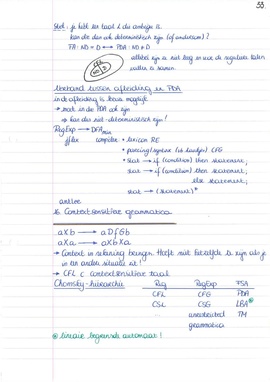 33
Stel: je hebt een taal L die ambigu is
kan die dan ook deterministisch zijn (of andersom)?
FA: ND = D ↔ PDA: ND ≠ D
CFL
ND D
allebei zijn niet leeg en ook de reguliere talen
zitten er samen.
Verband tussen afleiding en PDA
in de afleiding is keuze mogelijk
→ moet in die PDA ook zijn
→ kan dus niet-deterministisch zijn!
RegExp → DFA min
flex compiler • lexicon RE
• parsing/syntax (is landip) CFG
• stat → if (condition) then statement;
stat → if (condition) then statement;
else statement;
stat → (statement)*
antlr
§ Contextsensitive grammatica
aXb → aDfGb
aXa → aXbXa
→ Context in rekening brengen. Hoeft niet hetzelfde te zijn als je
in een andere situatie zit!
→ CFL ⊂ contextsensitive taal
Chomsky-hiërarchie Reg RegExp FSA
CFL CFG PDA
CSL CSG LBA
... unrestricted TM
grammatica
lineaire begrensde automaat!